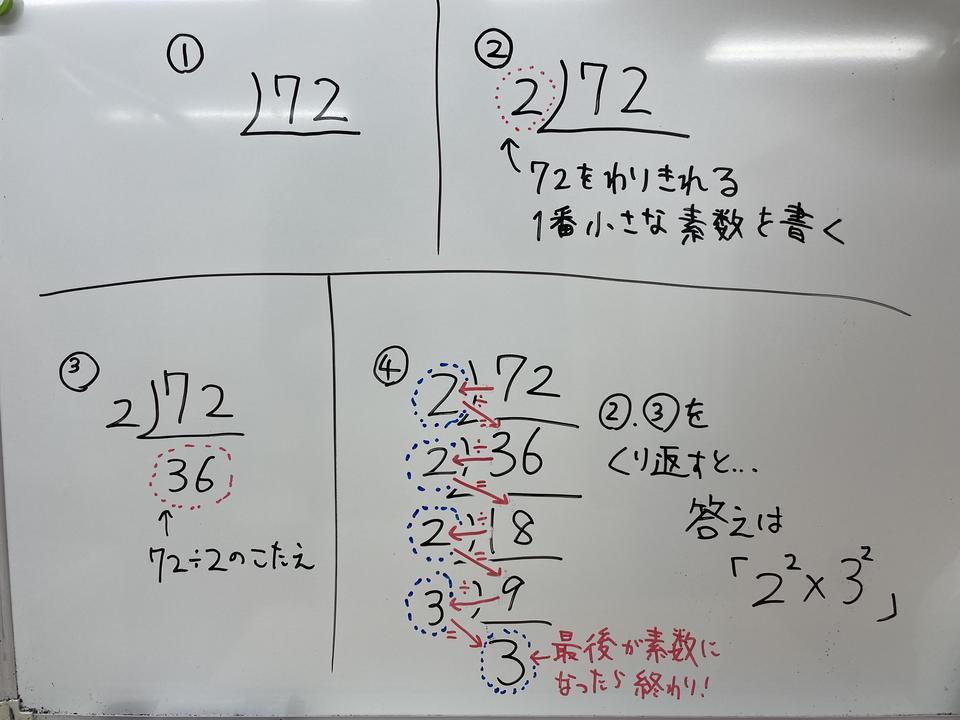 ①
72
②
2)72
72をわりきれる
1番小さな素数を書く
③
2)72
36
72÷2のこたえ
④
2)72
÷
=
2)36
÷
=
2)18
÷
=
3)9
÷
=
3
②.③を
くり返すと...
答えは
「2²×3²」
最後が素数に
なったら終わり!